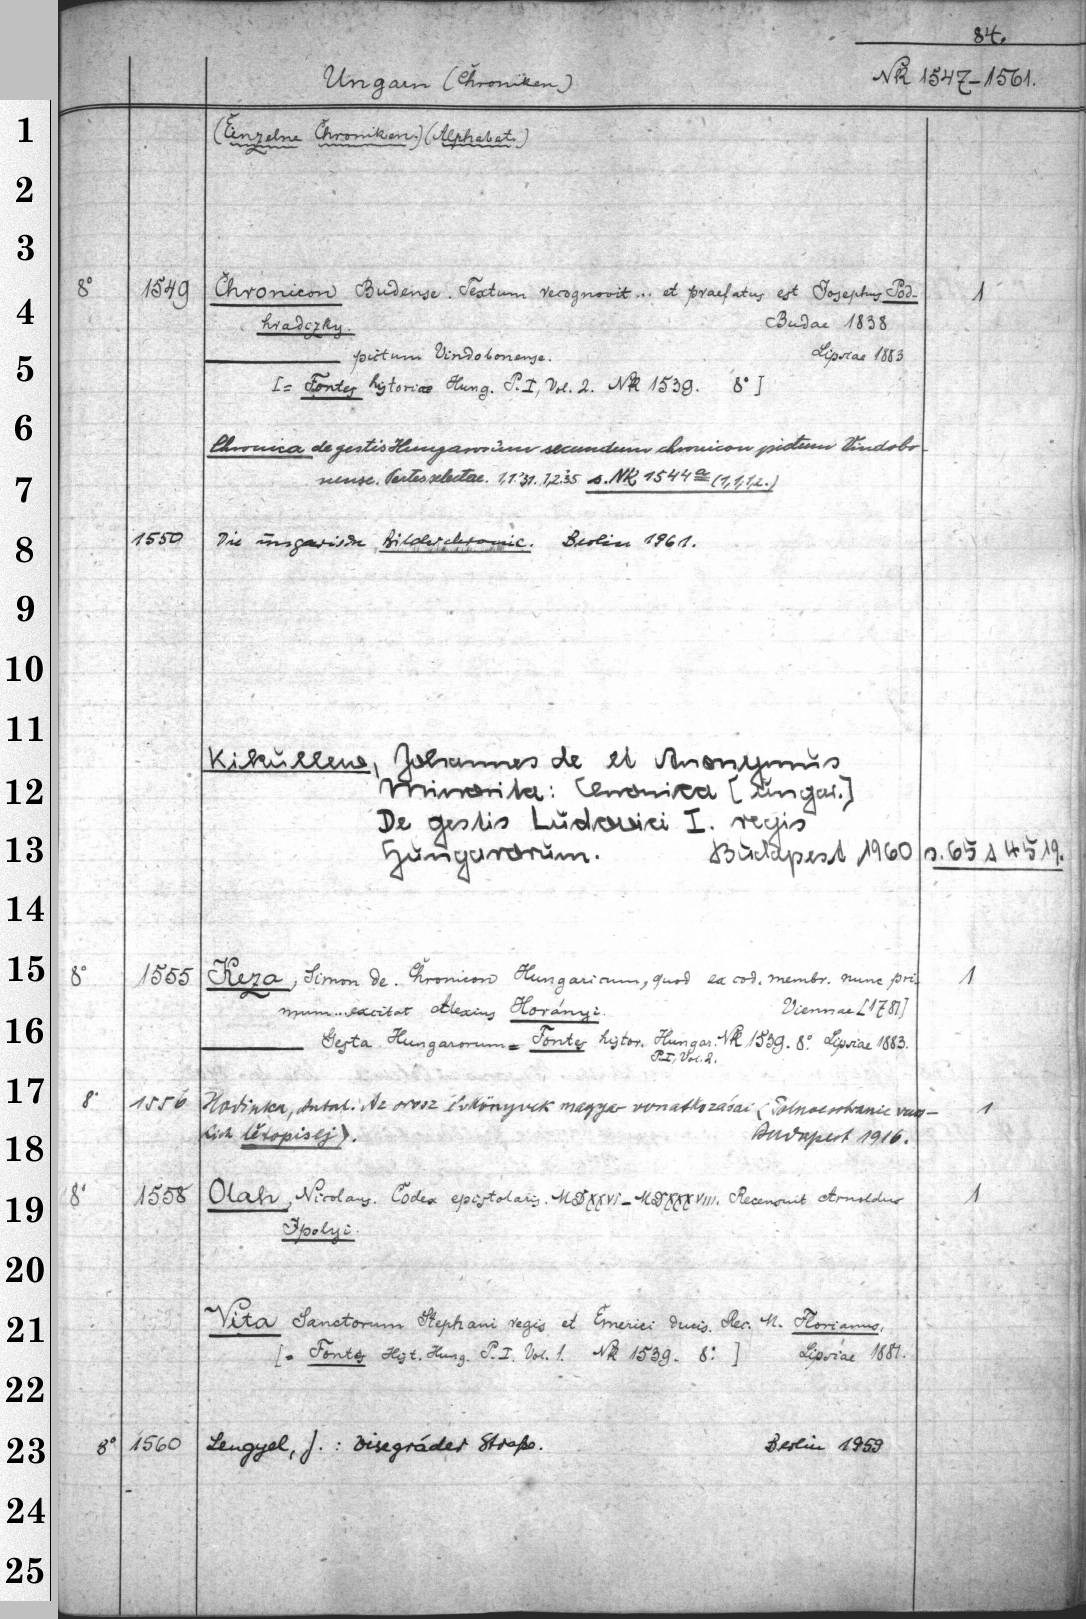 84.
Ungarn (Chroniken) NK 1547-1561.
1
(Einzelne Chroniken.) (Alphabet.)
2
3
8° 1549 Chronicon Budense. Textum recognovit ... et praefatus est Josephus Pod- 1
4
hradczky. Budae 1838
pictum Vindobonense. Lipsiae 1883
5
[= Fontes historiae Hung. P. I, Vol. 2. NK 1539. 8° ]
6
Chronica de gestis Hungarorum secundum chronicon pictum Vindobo-
7
nense. Partes selectae. 1,1.31. 1,2.35 s. NK 1544 a (1,1,1,2.)
8
1550 Die ungarische Bilderchronic. Berlin 1961.
9
10
11
Kikullew, Johannes de et Anonymus
12
Minorita: Cronica [ungar.]
De gestis Ludovici I. regis
13
Hungarorum. Budapest 1960 s. 65 A 4519.
14
15
8° 1555 Keza, Simon de. Chronicon Hungaricum, quod ex cod. membr. nunc pri- 1
mum... excitat Alexius Horányi. Viennae [1781]
16
Gesta Hungarorum = Fontes histor. Hungar. NK 1539. 8°. Lipsiae 1883.
P. I, Vol. 2.
17
8° 1556 Hodinka, Antal: Az orosz évkönyvek magyar vonatkozásai 1
18
létopisej). Budapest 1916.
19
8° 1558 Olah, Nicolaus. Codex epistolaris. MDXXVI-MDXXXVIII. Recensuit Arnoldus 1
Ipolyi.
20
21
Vita Sanctorum Stephani regis et Emerici ducis. Rec. M. Florianus.
[= Fontes Hist. Hung. P. I. Vol. 1. NK 1539. 8°. ] Lipsiae 1881.
22
23
8° 1560 Lengyel, J.: Visegráder Straße. Berlin 1959
24
25